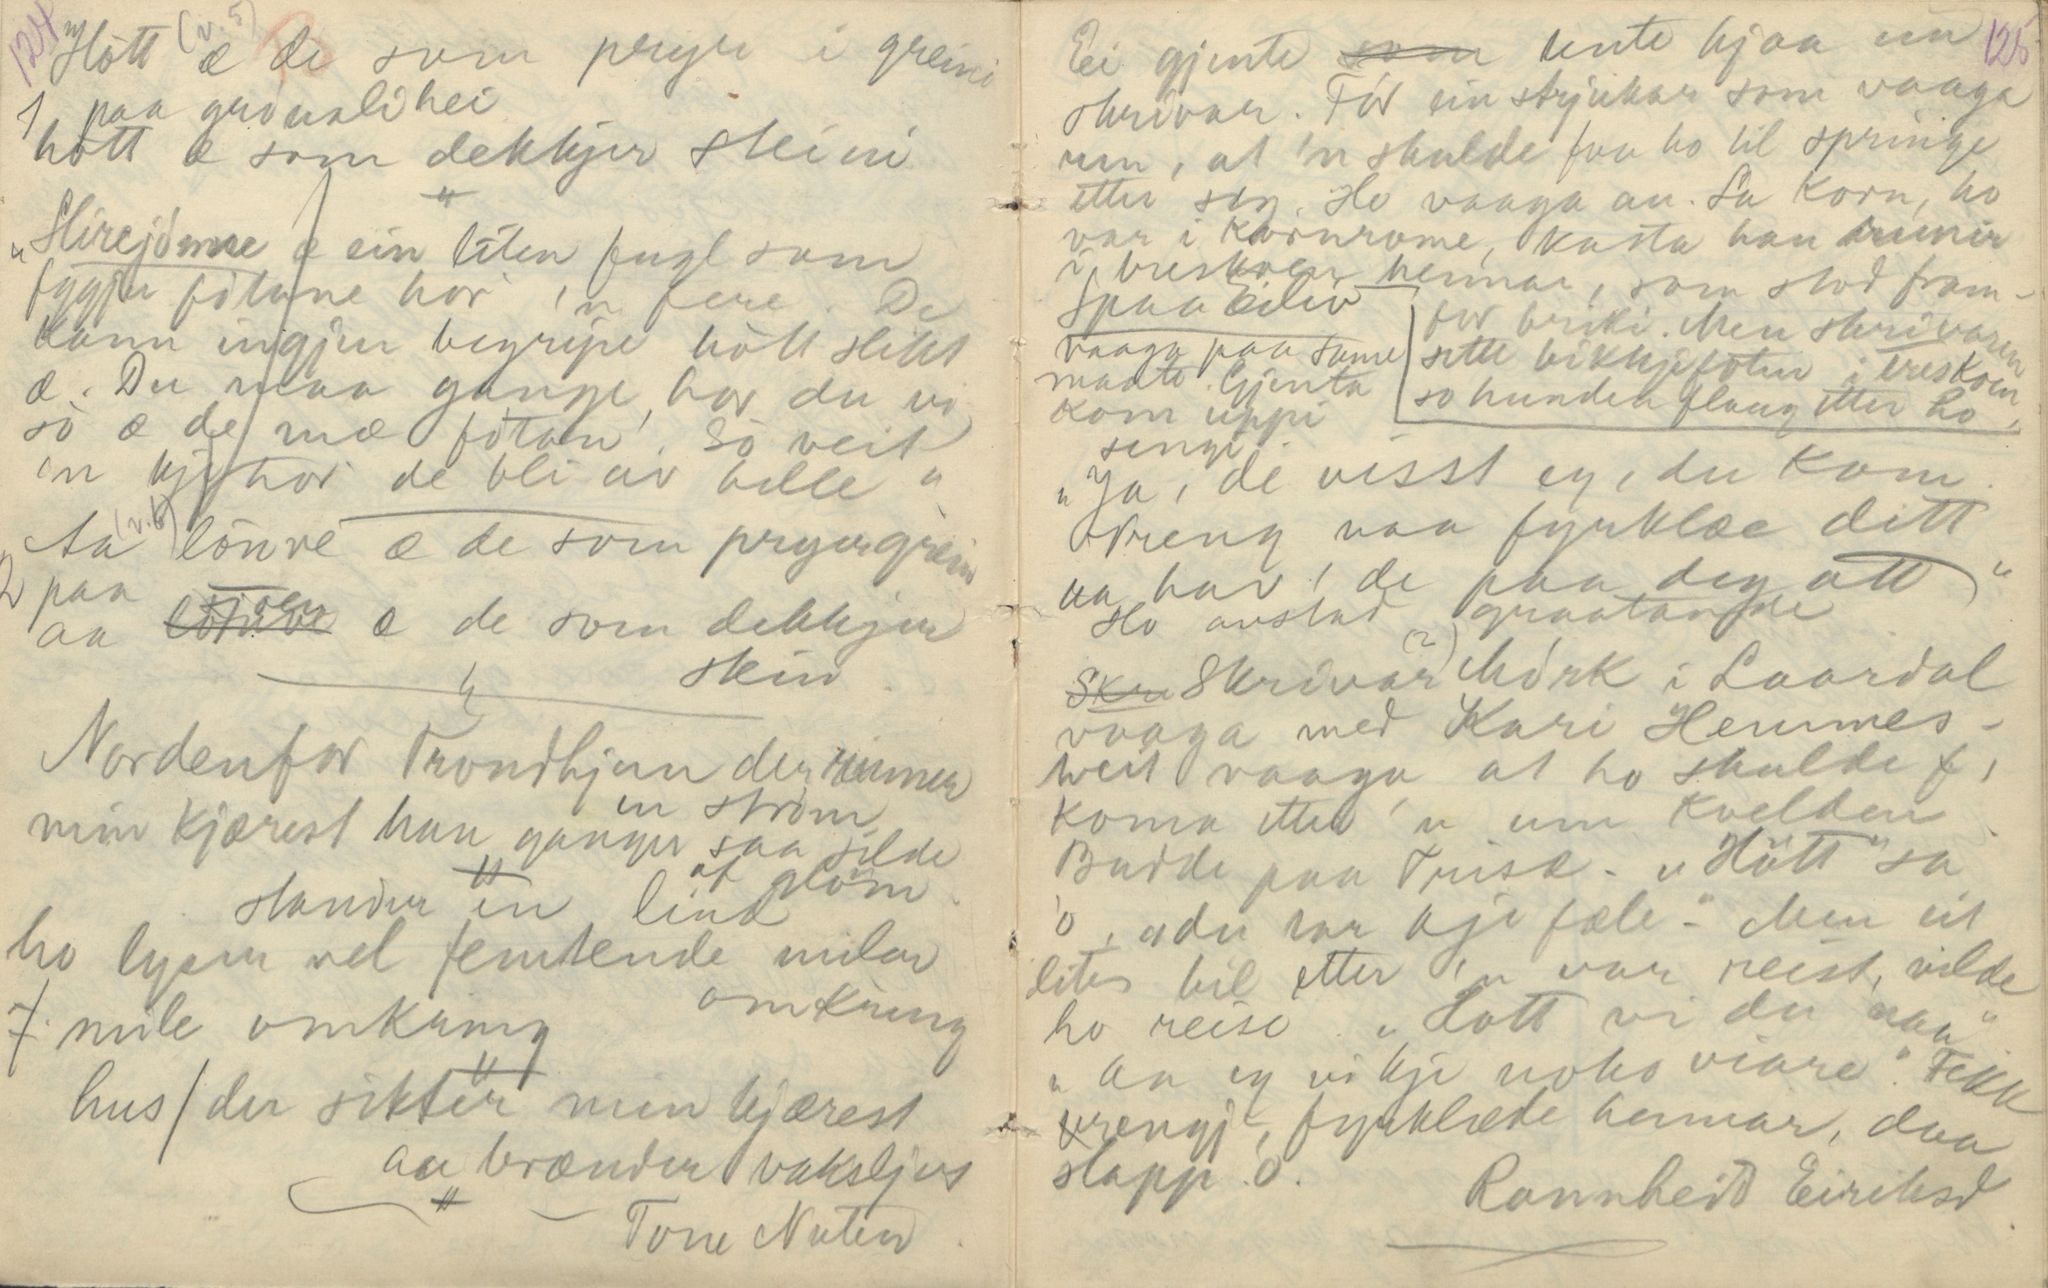 124
(v. 5)
"Hött æ de som pryr i greini
1 paa grönali hei
hött æ som dekkjer steini
"Skirejönne æ ein liten fugl som
fygjer fötane hor 'n fere. De
kann ingjen begripe hött slikt
æ. Du maa gange, hor du vi
so æ de mæ fötan'. So veit
'n kje hor de bli av bille"
(v. 6)
Aa lönve æ de som pryer grein
2 paa
aa æ de som dekkjer
stein
Nordenfor Trondhjem der rinner
en ström
min kjærest han ganger saa silde
af glöm
stander en lind
ho lyser vel femtende milar
omkring
7 mile omkring
hus / der sikter min kjærest
aa brænder voksljus
Tone Nuten
125
Ei gjente som tente hjaa ein
skrivar. För ein stryukar som vaaga
um, at 'n skulde faa ho til springe
etter seg. Ho vaaga an. Sa Korn, ho
var i Kornrome, kasta han runir
i breskoen hennar, som stod fram-
for briki. Men skrivaren
sette bikkjefoten i treskoen
so hunden flaug etter ho.
Spaa Eiliv
vaaga paa same
maate. Gjenta
kom uppi
sengi.
"Ja, de visst eg, du kom.
Vreng naa fyrklæe ditt
aa hav' de paa deg att"
Ho avstad graatande
Skr Skrivar (?) Mörk i Laardal
vaaga med Kari Hemmes-
tveit vaaga at ho skulde
koma etter 'n um kvelden
Budde paa Trisæ. "Hött" sa
'o, "du tar kje fæle". Men eit
lites bil etter 'n var reist, vilde
ho reise. "Hott vi du naa"
"Aa eg vi kje noko viare". Fekk
vrengj', fyrklæde hennar, daa
slapp 'o.
Rannheid Eiriksd.